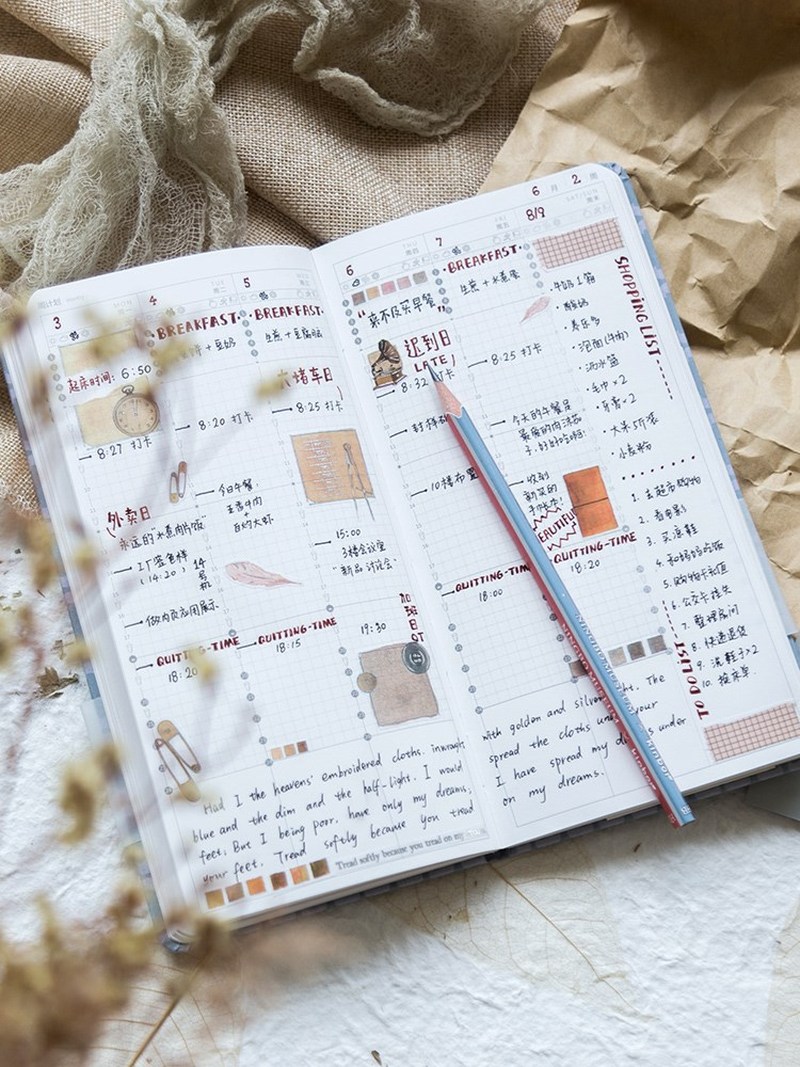 3
起床时间: 6:50
8:27 打卡
外卖日
永远的水煮肉片饭
工厂签色样
(14:20)
14号机
做内页应用展示
QUITTING-TIME
18:20
4
BREAKFAST
+ 豆奶
8:20 打卡
今日午餐
+
QUITTING-TIME
18:15
5
BREAKFAST
大堵车日
8:25 打卡
15:00
3楼会议室
"新品讨论会"
加班日 OT
19:30
Had I the heavens' embroidered cloths, inwrought
blue and the dim and the half-light. I would
feet. But I being poor. have only my dreams.
your feet. Tread softly because you tread
Tread softly because you tread on my
6
"来不及买早餐"
迟到日
LATE!
8:32 打卡
QUITTING-TIME
18:00
7
BREAKFAST
+ 水煮蛋
8:25 打卡
今天的午餐是
最爱的肉沫茄
子,好好吃啊!
收到
新买的
手帐本!
BEAUTIFUL
QUITTING-TIME
18:20
6 月 2 周
8/9
SHOPPING LIST
牛奶1箱
酸奶
养乐多
泡面(牛肉)
沥水篮
毛巾×2
牙膏×2
大米5斤装
小麦粉
1. 去超市购物
2. 看电影
3. 买凉鞋
4. 和妈妈吃饭
5. 购物卡充值
6. 公交卡挂失
7. 整理房间
8. 快递退货
9. 洗鞋子×2
10. 换床单
TO DO LIST
with golden and silver light. The
spread the cloths under your
I have spread my dreams under
on my dreams.